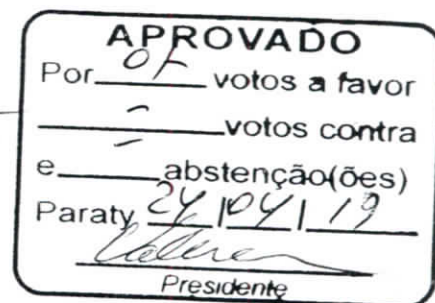 APROVADO
Por 07 votos a favor
- votos contra
e - abstenção(ões)
Paraty 24 / 04 / 19
Presidente